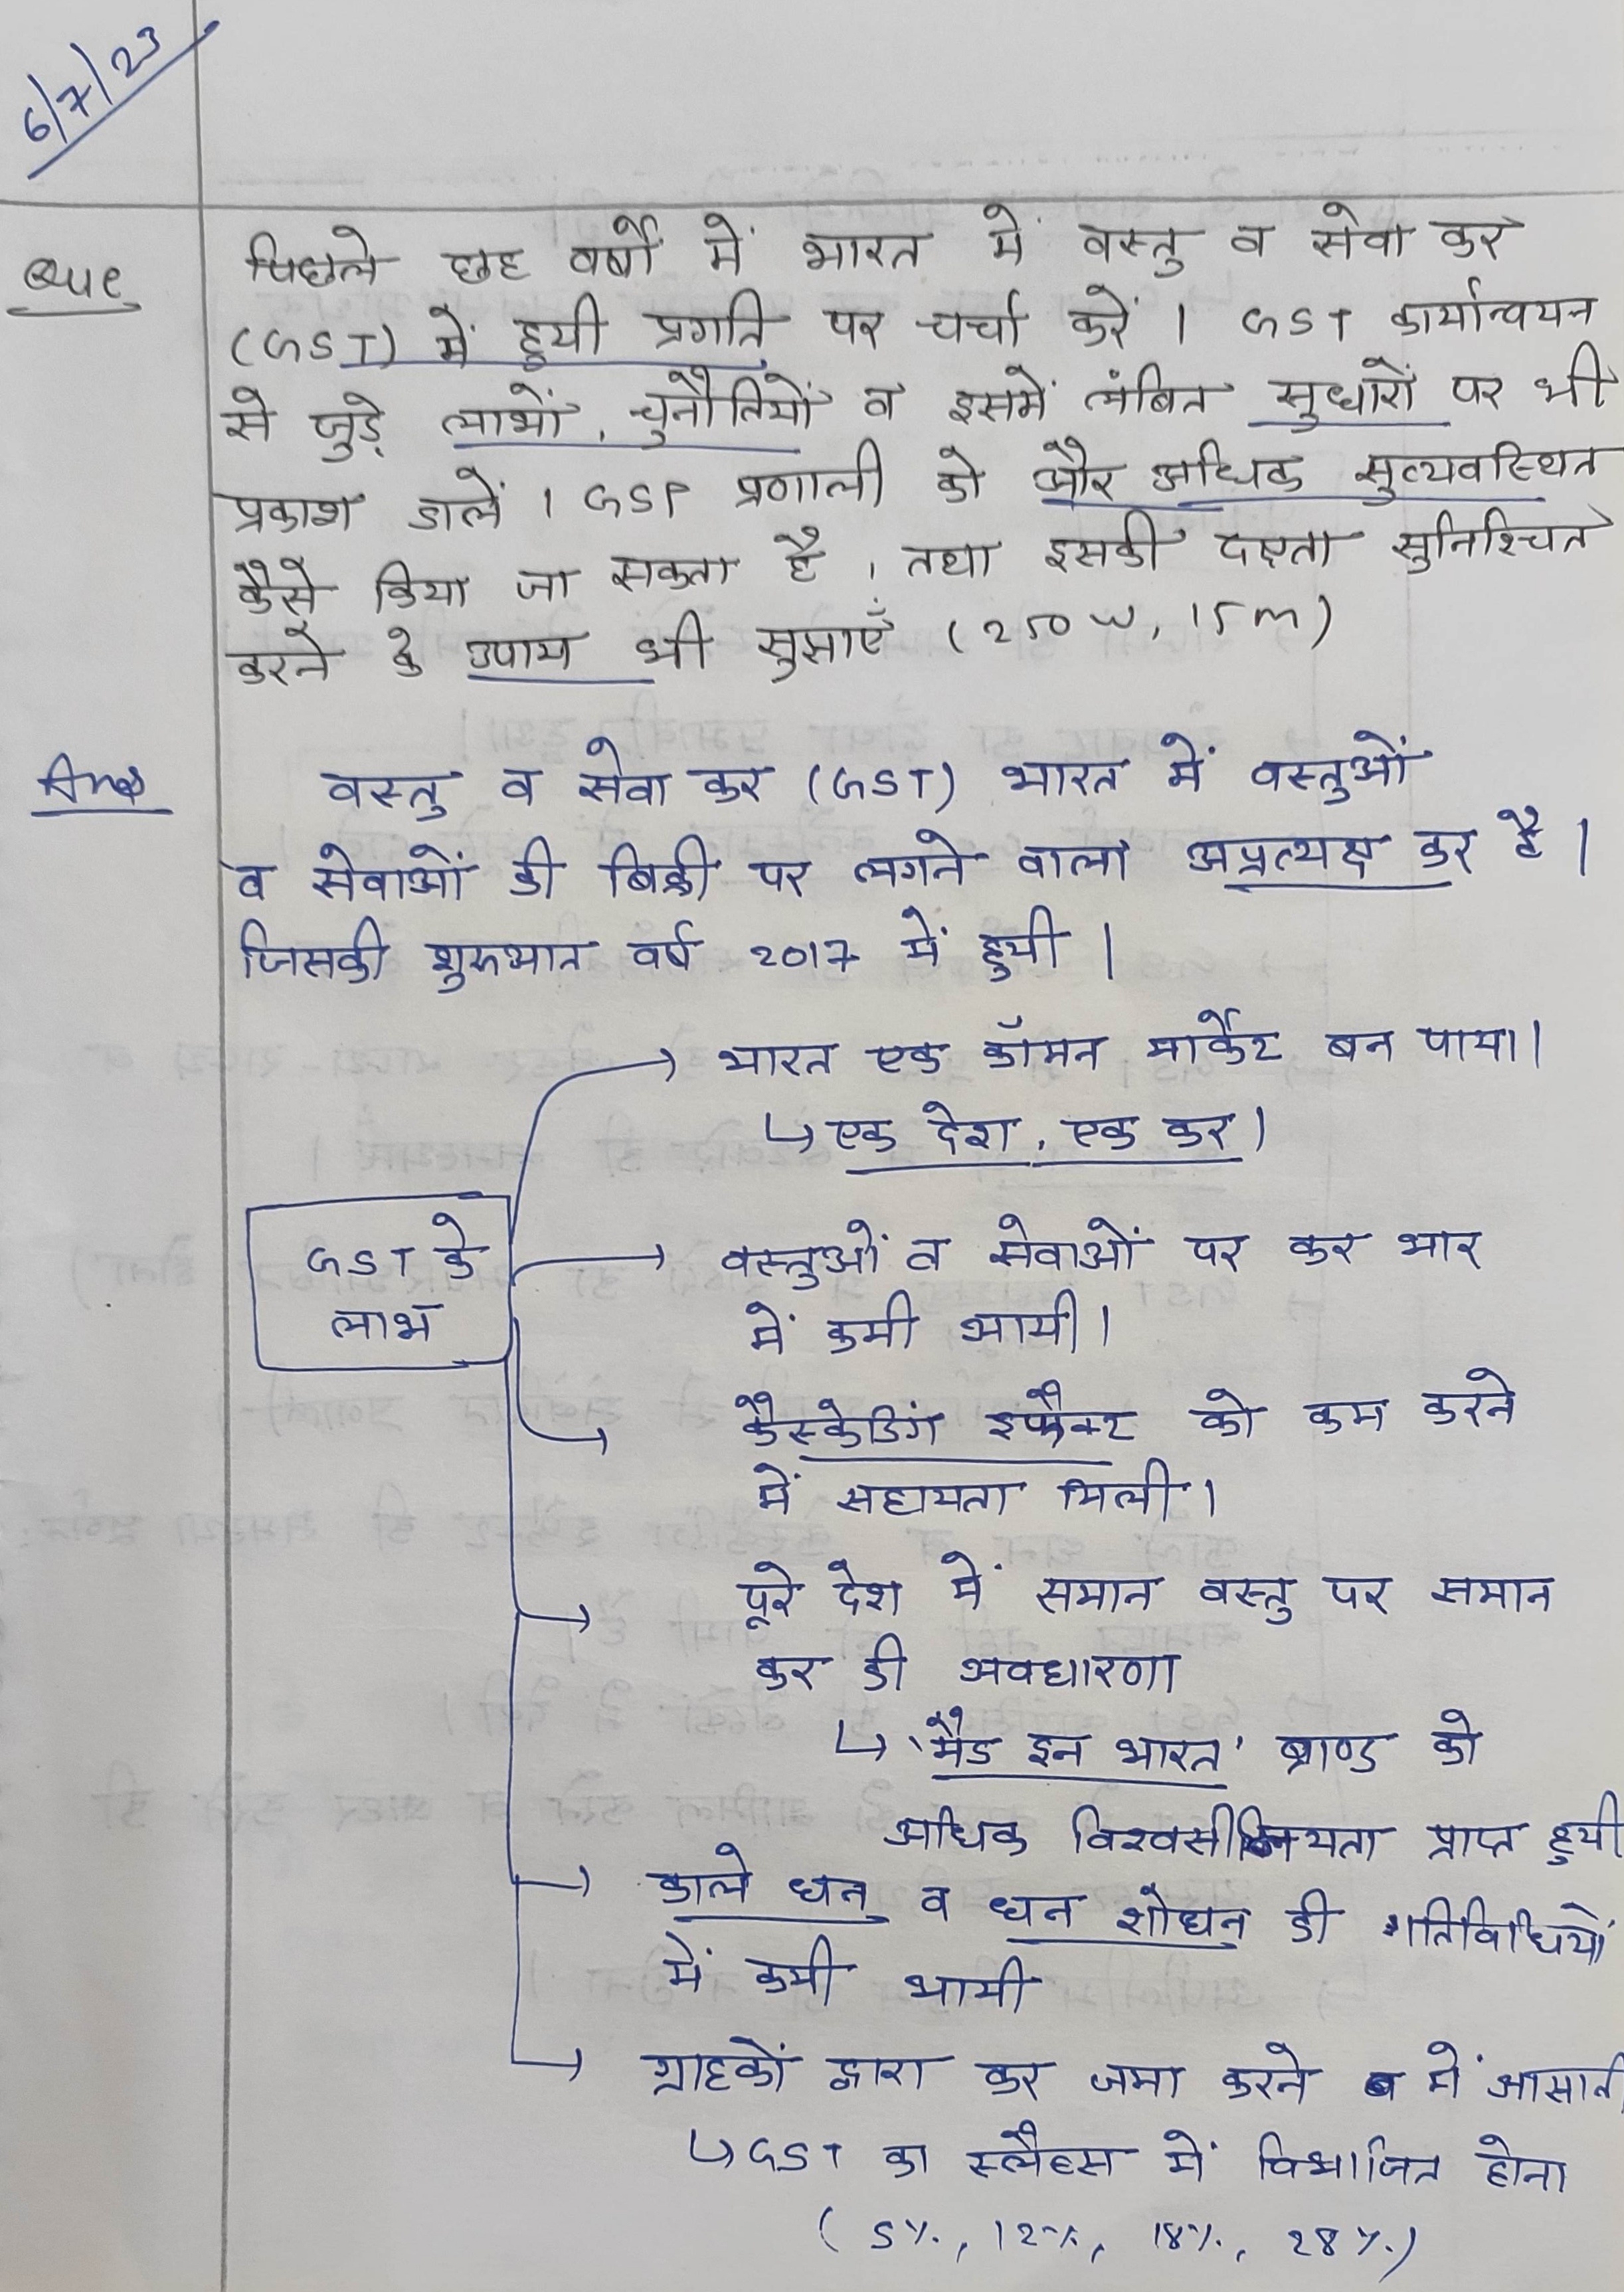 6/7/23
Que पिछले छह वर्षों में भारत में वस्तु व सेवा कर
(GST) में हुयी प्रगति पर चर्चा करें । GST कार्यान्वयन
से जुड़े लाभों, चुनौतियों व इसमें लंबित सुधारों पर भी
प्रकाश डालें । GST प्रणाली को और अधिक सुव्यवस्थित
कैसे किया जा सकता है, तथा इसकी दक्षता सुनिश्चित
करने के उपाय भी सुझाएँ (250 W, 15 m)
Ans वस्तु व सेवा कर (GST) भारत में वस्तुओं
व सेवाओं की बिक्री पर लगने वाला अप्रत्यक्ष कर है ।
जिसकी शुरुआत वर्ष 2017 में हुयी ।
GST के
लाभ
→ भारत एक कॉमन मार्केट बन पाया।
↳ एक देश, एक कर।
→ वस्तुओं व सेवाओं पर कर भार
में कमी आयी।
→ कैस्केडिंग इफैक्ट को कम करने
में सहायता मिली।
→ पूरे देश में समान वस्तु पर समान
कर की अवधारणा
↳ 'मैड इन भारत' ब्राण्ड को
अधिक प्राप्त हुयी
→ काले धन व धन शोधन की गतिविधियों
में कमी आयी
→ ग्राहकों द्वारा कर जमा करने में आसानी
↳ GST का स्लैब्स में विभाजित होना
(5%, 12%, 18%, 28%)